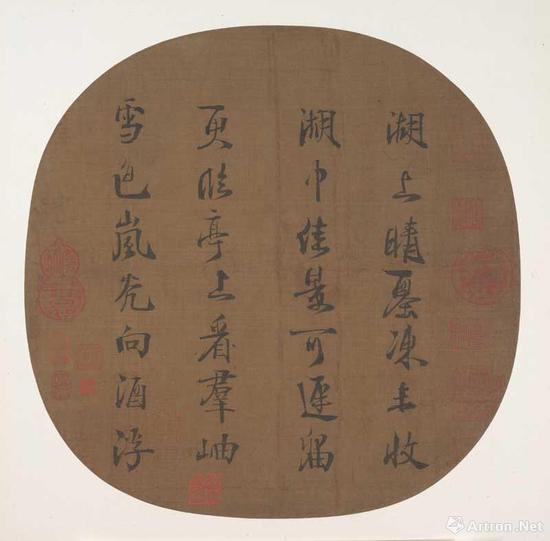 湖上晴凍未收
湖中佳景可遲留
更臨亭上看羣岫
雪色嵐光向酒浮
Artron.Net